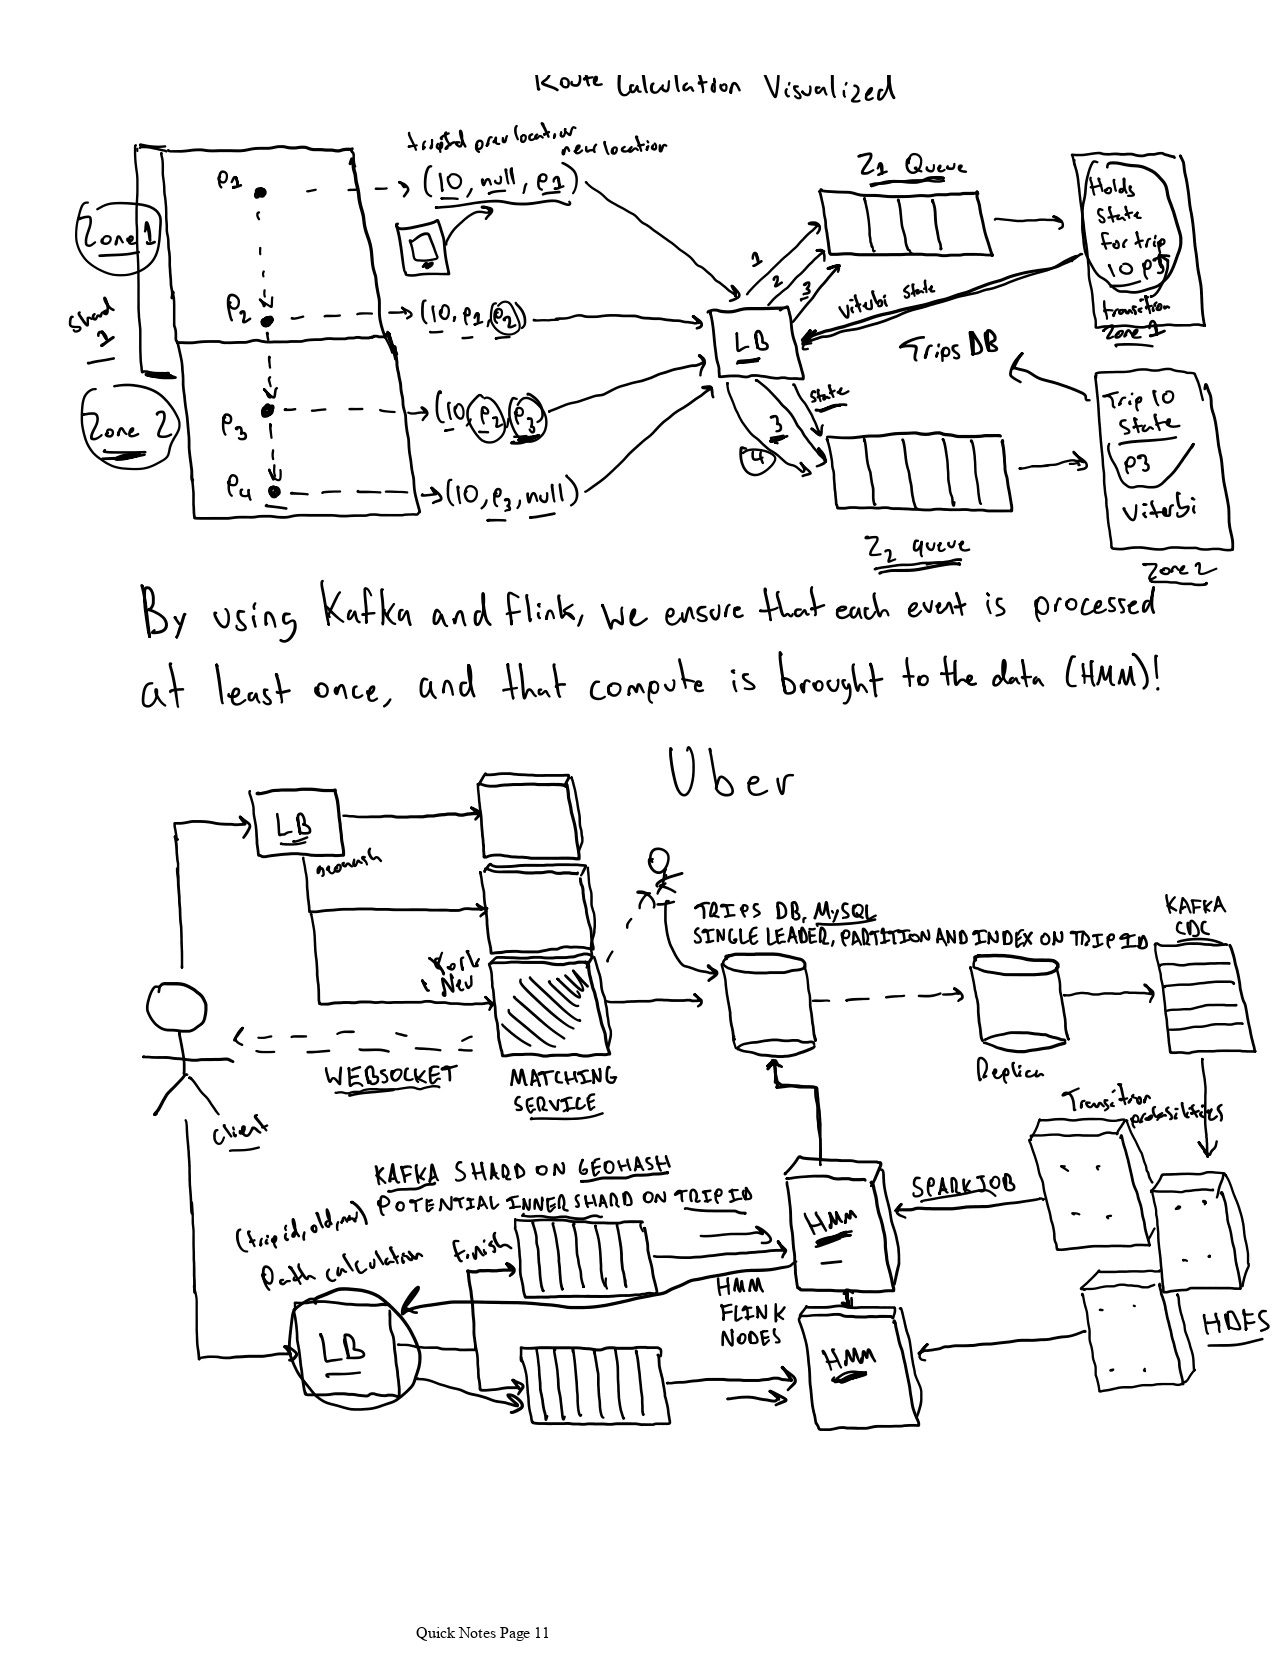 Route Calculation Visualized
tripId prev location new location
(10, null, P1)
P1
Zone 1
Shard 1
P2
(10, P1, P2)
Zone 2
P3
(10, P2, P3)
P4
(10, P3, null)
LB
1
2
3
Z1 Queue
Viterbi State
Holds
State
for trip
10 P3
transition
Zone 1
Trips DB
state
3
4
Z2 queue
Trip 10
State
P3
Viterbi
Zone 2
By using Kafka and Flink, we ensure that each event is processed
at least once, and that compute is brought to the data (HMM)!
Uber
LB
geohash
York
New
WEBSOCKET
MATCHING
SERVICE
client
TRIPS DB, MySQL
SINGLE LEADER, PARTITION AND INDEX ON TRIP ID
KAFKA
CDC
Replica
Transition
probabilities
KAFKA SHARD ON GEOHASH
POTENTIAL INNER SHARD ON TRIP ID
(trip id, old, new)
Path calculation
finish
LB
HMM
FLINK
NODES
HMM
HMM
SPARK JOB
HDFS
Quick Notes Page 11